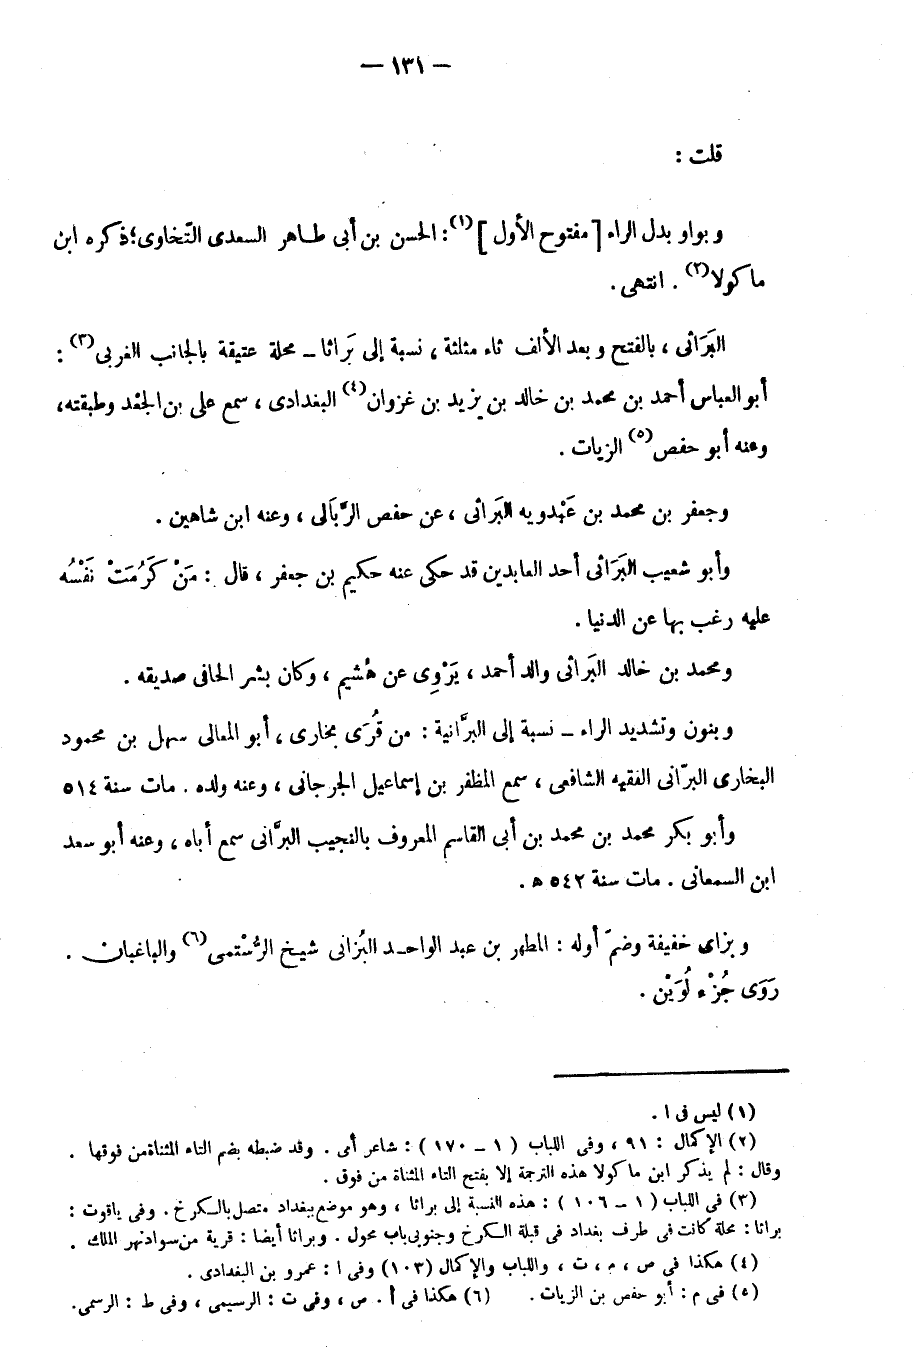 — ١٣١ —
قلت :
وبواو بدل الراء [ مفتوح الأول ](١): الحسن بن أبى طاهر السعدى التّخاوى؛ ذكره ابن
ماكولا(٢) . انتهى .
البَرَاثى ، بالفتح وبعد الألف ثاء مثلثة ، نسبة إلى بَراثا ــ محلة عتيقة بالجانب الغربى(٣) :
أبو العباس أحمد بن محمد بن خالد بن يزيد بن غزوان(٤) البغدادى ، سمع على بن الجعْد وطبقته،
وعنه أبو حفص(٥) الزيات .
وجعفر بن محمد بن عَبْدويه البَراثى ، عن حفص الرَّبَالى ، وعنه ابن شاهين .
وأبو شعيب البَرَاثى أحد العابدين قد حكى عنه حكيم بن جعفر ، قال : مَنْ كَرُمَتْ نَفْسُه
عليه رغب بها عن الدنيا .
ومحمد بن خالد البَراثى والد أحمد ، يَرْوِى عن هُشيم ، وكان بشر الحافى صديقه .
وبنون وتشديد الراء ــ نسبة إلى البرَّانية : من قُرَى بخارى ، أبو المعالى سهل بن محمود
البخارى البرّانى الفقيه الشافعى ، سمع المظفر بن إسماعيل الجرجانى ، وعنه ولده . مات سنة ٥١٤
وأبو بكر محمد بن محمد بن أبى القاسم المعروف بالنجيب البرَّانى سمع أباه ، وعنه أبو سعد
ابن السمعانى . مات سنة ٥٤٢ ه .
وبزاى خفيفة وضمّ أوله : المطهر بن عبد الواحد البُزانى شيخ الرُّسْتمى(٦) والباغبان .
رَوَى جُزْء لُوَيْن .
(١) ليس فى ا .
(٢) الإكمال : ٩١ ، وفى اللباب ( ١ ــ ١٧٠ ) : شاعر أمى . وقد ضبطه بضم التاء المثناة من فوقها .
وقال : لم يذكر ابن ماكولا هذه الترجمة إلا بفتح التاء المثناة من فوق .
(٣) فى اللباب ( ١ ــ ١٠٦ ) : هذه النسبة إلى براثا ، وهو موضع ببغداد متصل بالكرخ . وفى ياقوت :
براثا : محلة كانت فى طرف بغداد فى قبلة الكرخ وجنوبى باب محول . وبراثا أيضا : قرية من سواد نهر الملك .
(٤) هكذا فى ص ، م ، ت ، واللباب والإكمال (١٠٣) وفى ا : عمرو بن البغدادى .
(٥) فى م : أبو حفص بن الزيات . (٦) هكذا فى أ . ص ، وفى ت : الرسيمى ، وفى ط : الرسمى .